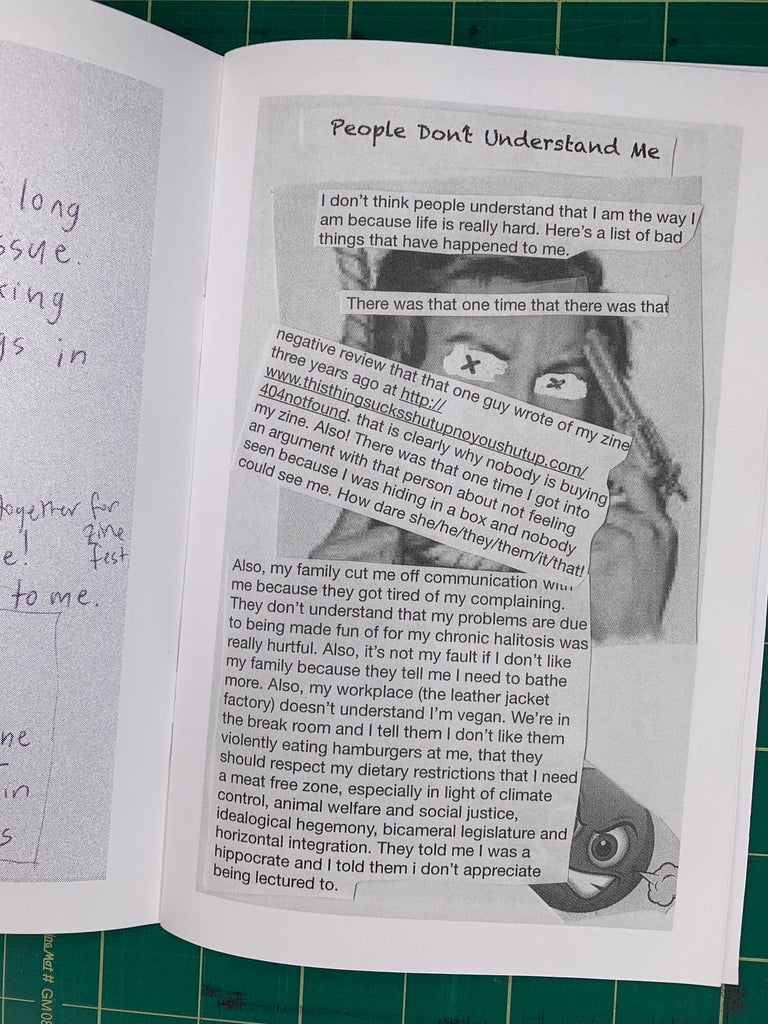 long
ssue.
king
gs in
together for
zine
e! fest
to me.
ne
in
s
People Don't Understand Me
I don't think people understand that I am the way I
am because life is really hard. Here's a list of bad
things that have happened to me.
There was that one time that there was that
negative review that that one guy wrote of my zine
three years ago at http://
www.thisthingsucksshutupnoyoushutup.com/
404notfound. that is clearly why nobody is buying
my zine. Also! There was that one time I got into
an argument with that person about not feeling
seen because I was hiding in a box and nobody
could see me. How dare she/he/they/them/it/that!
Also, my family cut me off communication with
me because they got tired of my complaining.
They don't understand that my problems are due
to being made fun of for my chronic halitosis was
really hurtful. Also, it's not my fault if I don't like
my family because they tell me I need to bathe
more. Also, my workplace (the leather jacket
factory) doesn't understand I'm vegan. We're in
the break room and I tell them I don't like them
violently eating hamburgers at me, that they
should respect my dietary restrictions that I need
a meat free zone, especially in light of climate
control, animal welfare and social justice,
idealogical hegemony, bicameral legislature and
horizontal integration. They told me I was a
hippocrate and I told them i don't appreciate
being lectured to.
ing Mat # GM08